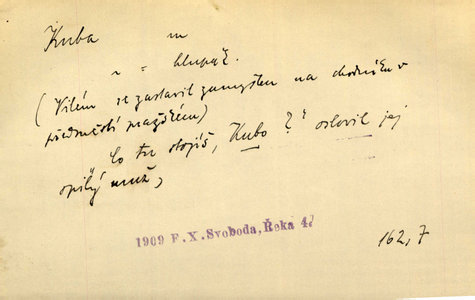 Kuba m
" = hlupák.
(Vilém se zastavil zamyšlen na chodníku v
předměstí pražském)
„Co tu stojíš, Kubo?“ oslovil jej
opilý muž,
1909 F. X. Svoboda, Řeka 4?
162,7